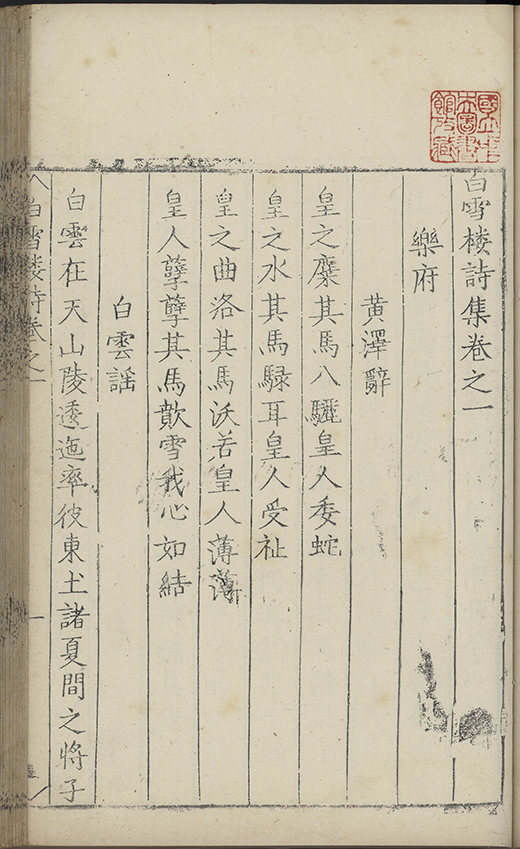 白雪樓詩集卷之一
樂府
黃澤辭
皇之麋其馬八驪皇人委蛇
皇之水其馬騄耳皇人受祉
皇之曲洛其馬沃若皇人薄薄
皇人孽孽其馬歕雪我心如結
白雲謡
白雲在天山陵逶迤率彼東土諸夏間之將子
白雪樓詩卷之一
一